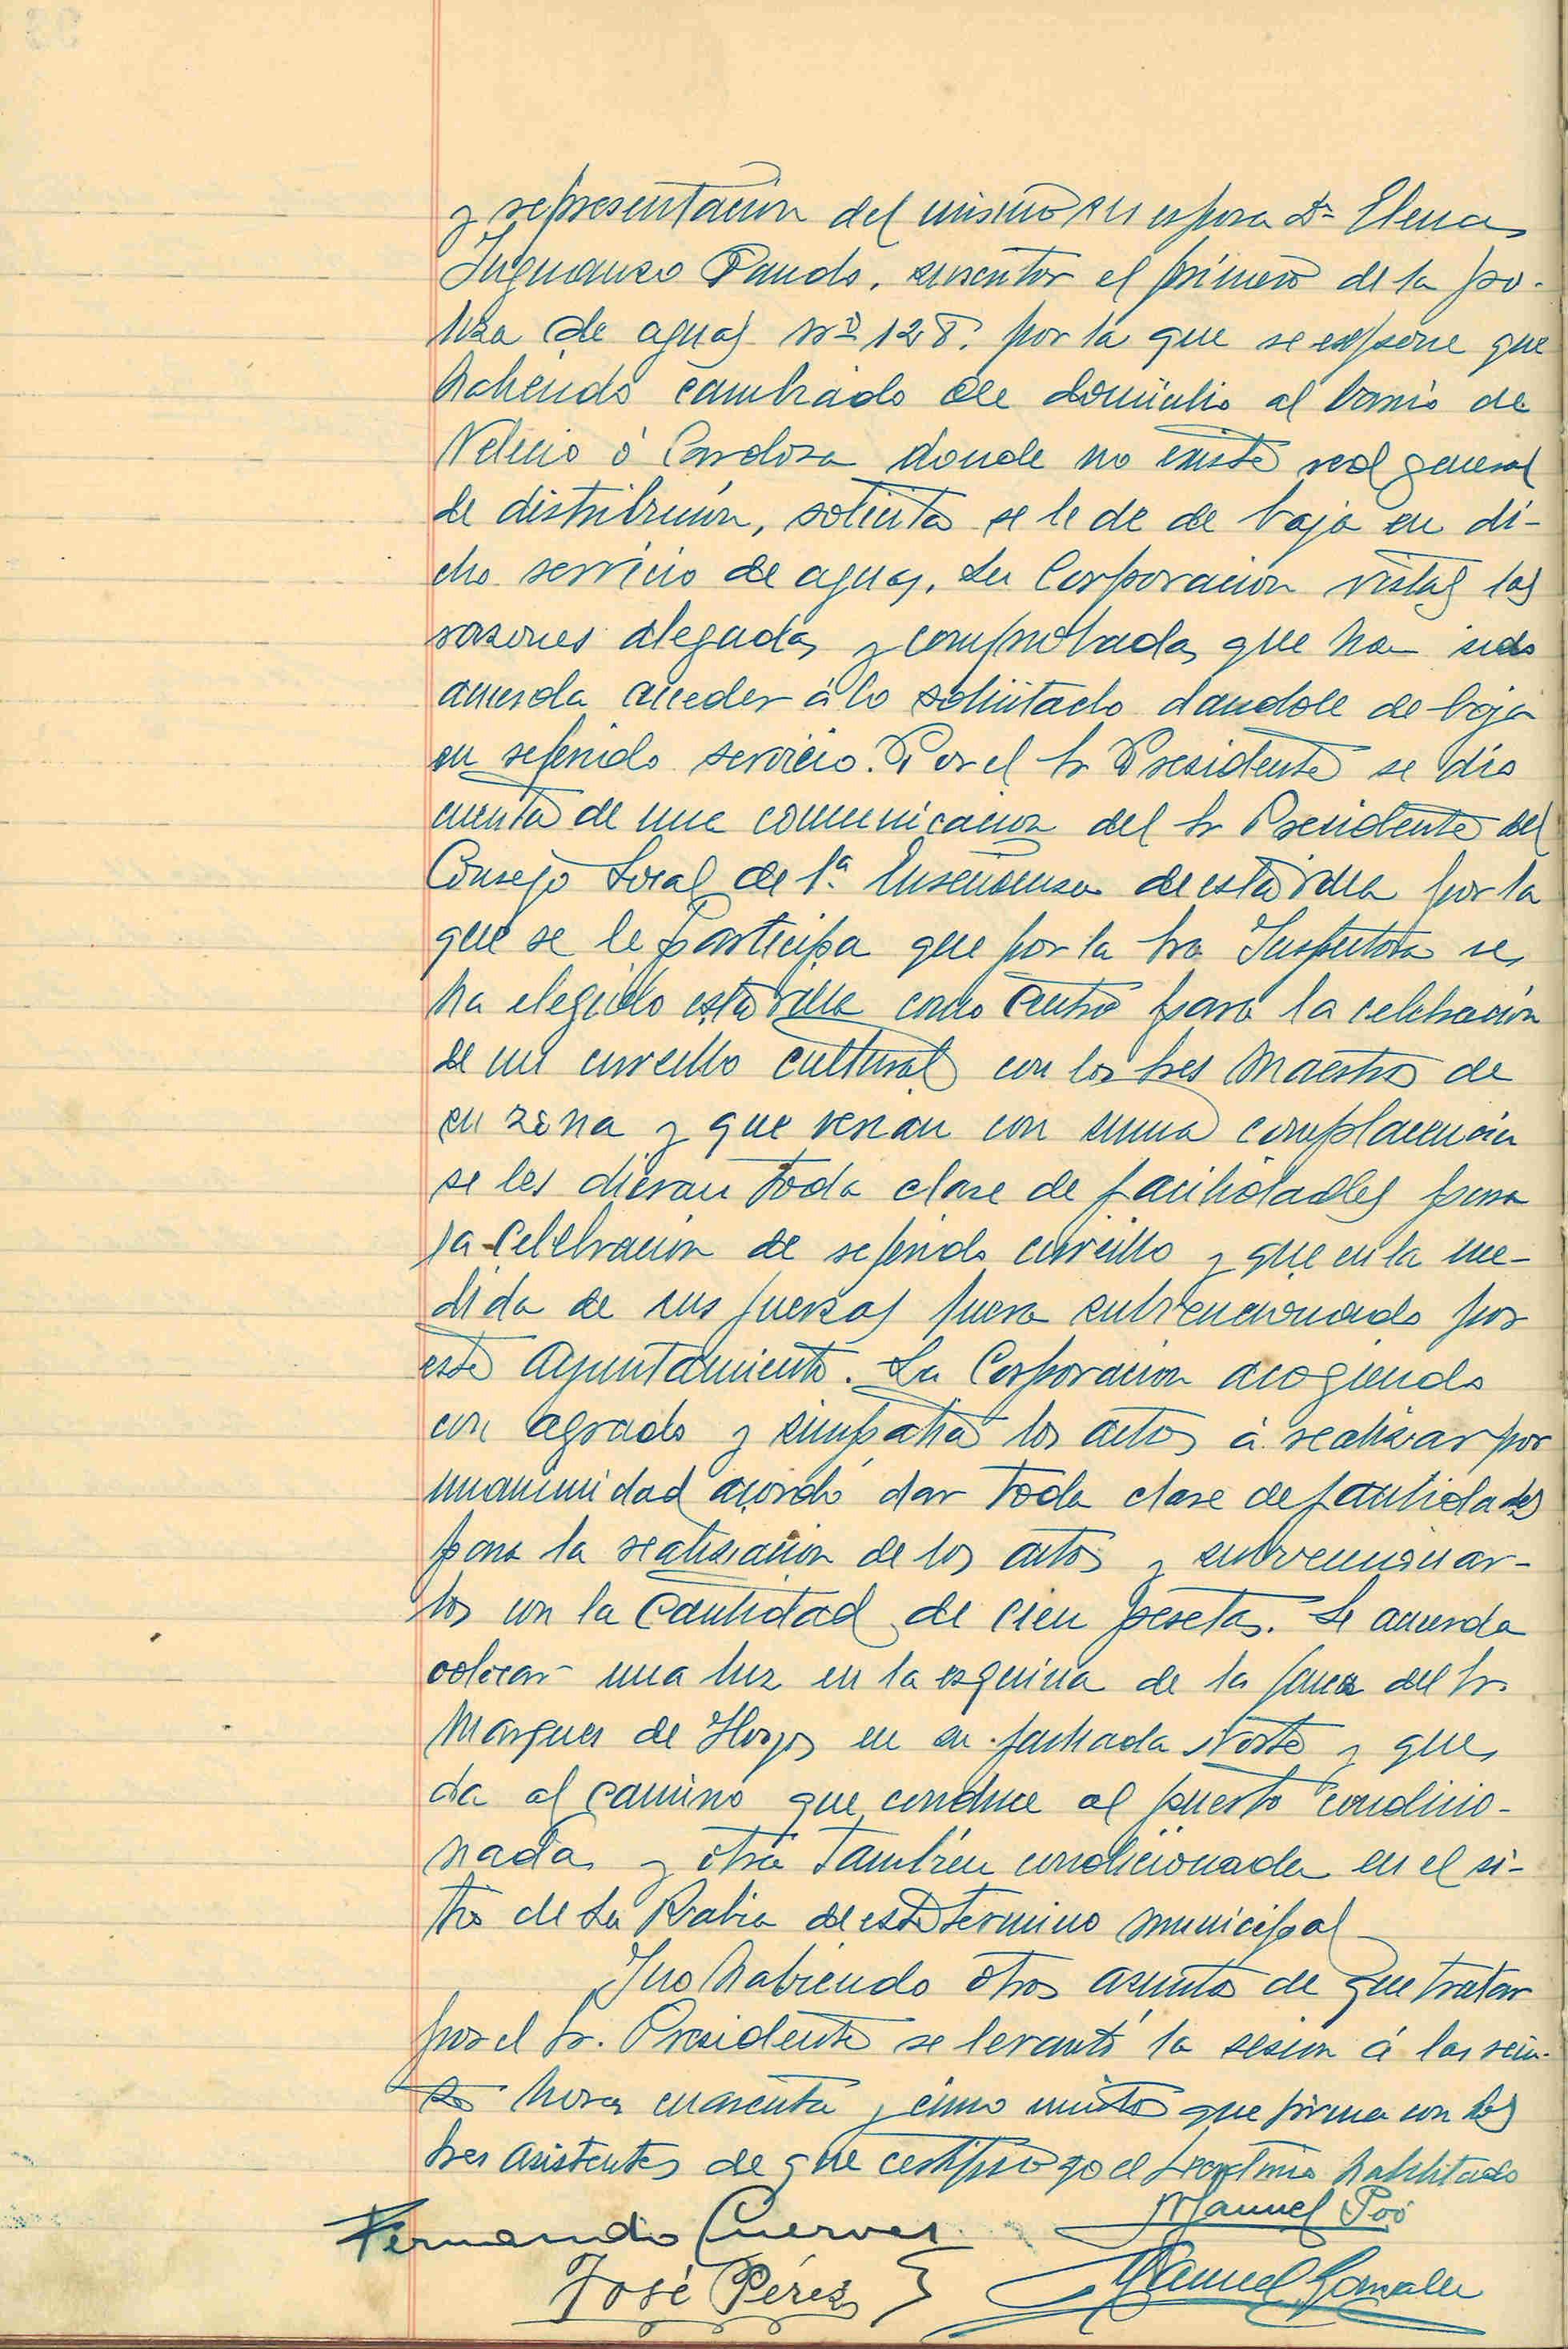 y representación del mismo su esposa Dª Elena
Inguanzo Pando, suscritor el primero de la po-
liza de aguas nº 128. por la que se expone que
habiendo cambiado de domicilio al barrio de
Velecio ó Cardosa donde no existe red general
de distribución, solicita se le de de baja en di-
cho servicio de aguas. La Corporacion vistas las
razones alegadas y comprobadas que han sido
acuerda acceder á lo solicitado dandole de baja
en referido servicio. Por el Sr Presidente se dio
cuenta de una comunicacion del Sr Presidente del
Consejo Local de 1ª. Enseñanza de esta villa por la
que se le participa que por la Sra Inspectora se
ha elegido esta villa como Centro para la celebración
de un cursillo cultural con los Sres Maestros de
su zona y que verian con suma complacencia
se les dieran toda clase de facilidades para
la celebracion de referido cursillo y que en la me-
dida de sus fuerzas fuera subvencionado por
este Ayuntamiento. La Corporacion acogiendo
con agrado y simpatia los actos á realizar por
unanimidad acordó dar toda clase de facilidades
para la realizacion de los actos y subvencionar-
los con la cantidad de cien pesetas. Se acuerda
colocar una luz en la esquina de la finca del Sr.
Marques de Hoyos en su fachada Norte y que
da al camino que conduce al puerto condicio-
nada y otra tambien condicionada en el si-
tio de La Rabia de este termino municipal
Y no habiendo otros asuntos de que tratar
por el Sr. Presidente se levantó la sesion á las vein-
horas cuarenta y cinco mintos que firma con los
Sres asistentes de que certifico yo el Secretario habilitado
Fernando Cuerves Manuel Poó
José Pérez Manuel Gonzalez